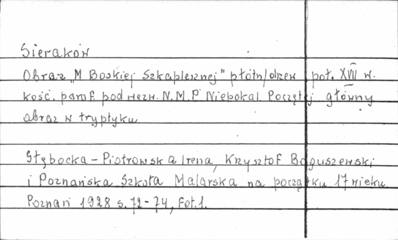 Sieraków
Obraz „M Boskiej Szkaplerznej" płótn/drzew poł. XVII w.
kość. paraf. pod wezw. N.M.P. Niepokal Poczętej główny
obraz w tryptyku
Głębocka-Piotrowska Irena, Krzysztof Boguszewski
i Poznańska Szkoła Malarska na początku 17 wieku
Poznań 1928 s. 72-74, Fot. 1.